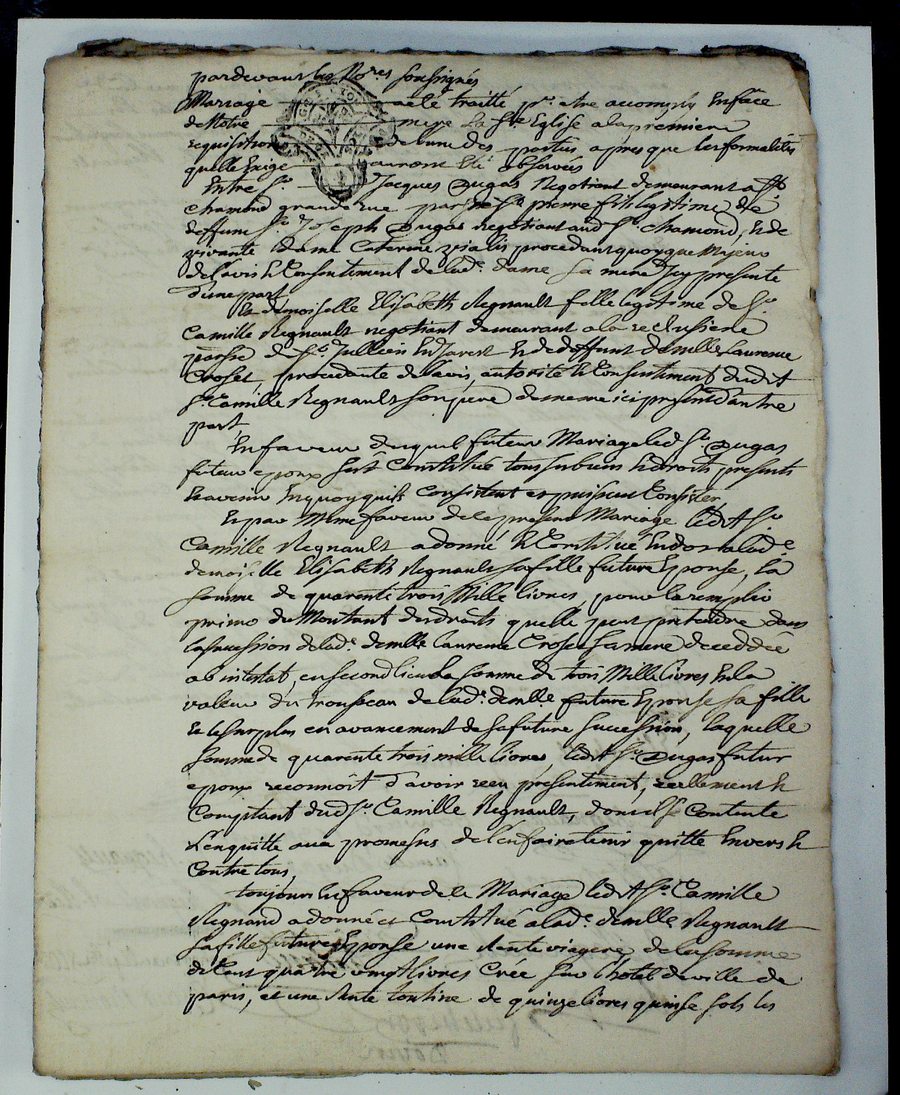 pardevant les No.res soussignés
Mariage a eté traitté p.r etre accomply en face
de Notre mere la S.te Eglise a la premiere
requisition de l'une des parties apres que les formalités
quelle Exige auront Eté observées
Entre S.r Jacques Dugas Negotiant demeurant a S.t
chamond grande rue par.sse S.t pierre fils legitime de
deffunt S.r Joseph Dugas negotiant aud S.t chamond, et de
vivante dame Caterine vialis procedant quoyque Majeur
de l'avis & Consentement de lad.e dame sa mere Icy presente
d'une part
Et demoiselle Elisabeth Regnault fille legitime de S.r
Camille Regnault negotiant demeurant a la reclusiere
parsse de S.t Jullien En Jarest & de deffunte demlle Laurence
Croset, procedante de l'avis, autorité & Consentement dudit
S.r Camille Regnault son pere de meme ici present d'autre
part
En faveur duquel futur Mariage led S.r Dugas
futur epoux s'est Constitué tous ses biens & droits presents
& avenir En quoy quils Consistent et puissent Consister
Et par Meme faveur de ce present Mariage led.t S.r
Camille Regnault a donné & Constitué En dot a lad.e
demoiselle Elisabeth Regnault sa fille future Epouse, la
somme de quarente trois Mille livres, pour la remplir
primo du Montant des droits quelle peut pretendre dans
la succession de lad.e demlle Laurence Croset sa mere decedée
ab intestat, en second lieu la somme de trois Mille livres Est la
valeur du trousseau de lad.e demlle future Epouse sa fille
Et le surplus en avancement de sa future succession, laquelle
somme de quarente trois mille livres, led.t S.r Dugas futur
epoux reconnoit d'avoir receu presentement, reellement &
Comptant dud S.r Camille Regnault, dont il se Contente
L'en quitte aux promesses de l'en faire tenir quitte Envers &
Contre tous,
toujours En faveur de ce Mariage led.t S.r Camille
Regnaud a donné et Constitué a lad.e demlle Regnault
sa fille future Epouse une Rente viagere, de la somme
de Cent quatre vingt livres Crée sur l'hotel de ville de
paris, et une Rente tontine de quinze livres quinse sols les